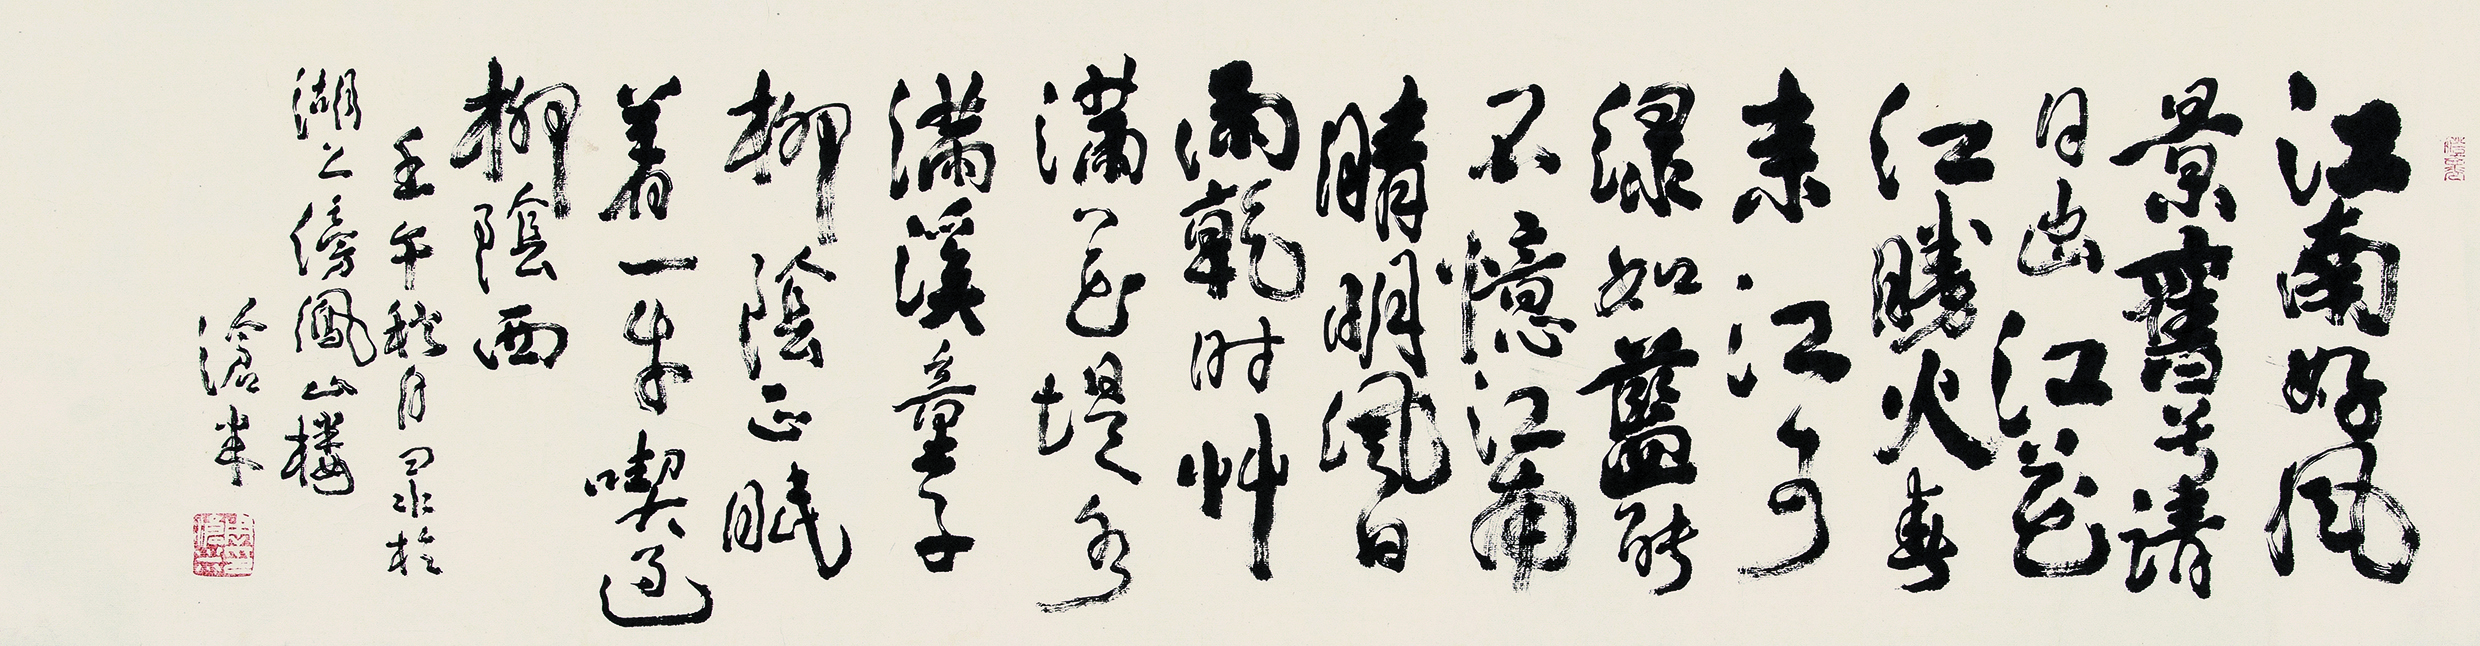 江南好風
景舊曾諳
日出江花
紅勝火春
來江水
綠如藍能
不憶江南
晴明風日
雨乾时艸
滿花堤水
滿溪童子
柳陰正眠
着一牛喫過
柳陰西
壬午秋月於
湖上傍鳳山樓
滄米